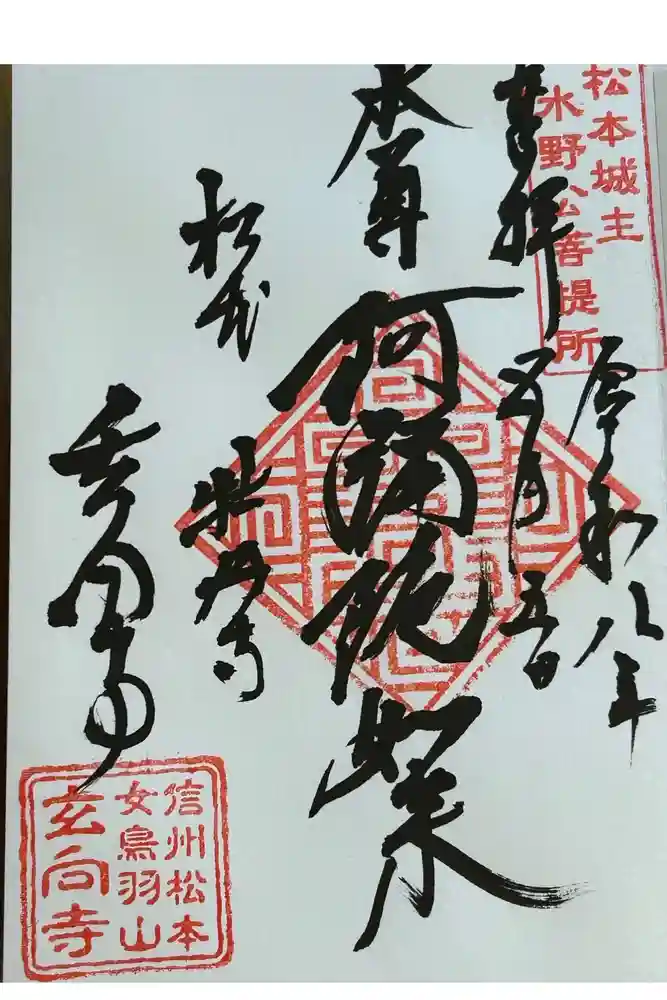 松本城主
水野公菩提所
奉拝
令和八年
五月五日
本尊
阿弥陀如来
松本
牡丹寺
玄向寺
信州松本
女鳥羽山
玄向寺